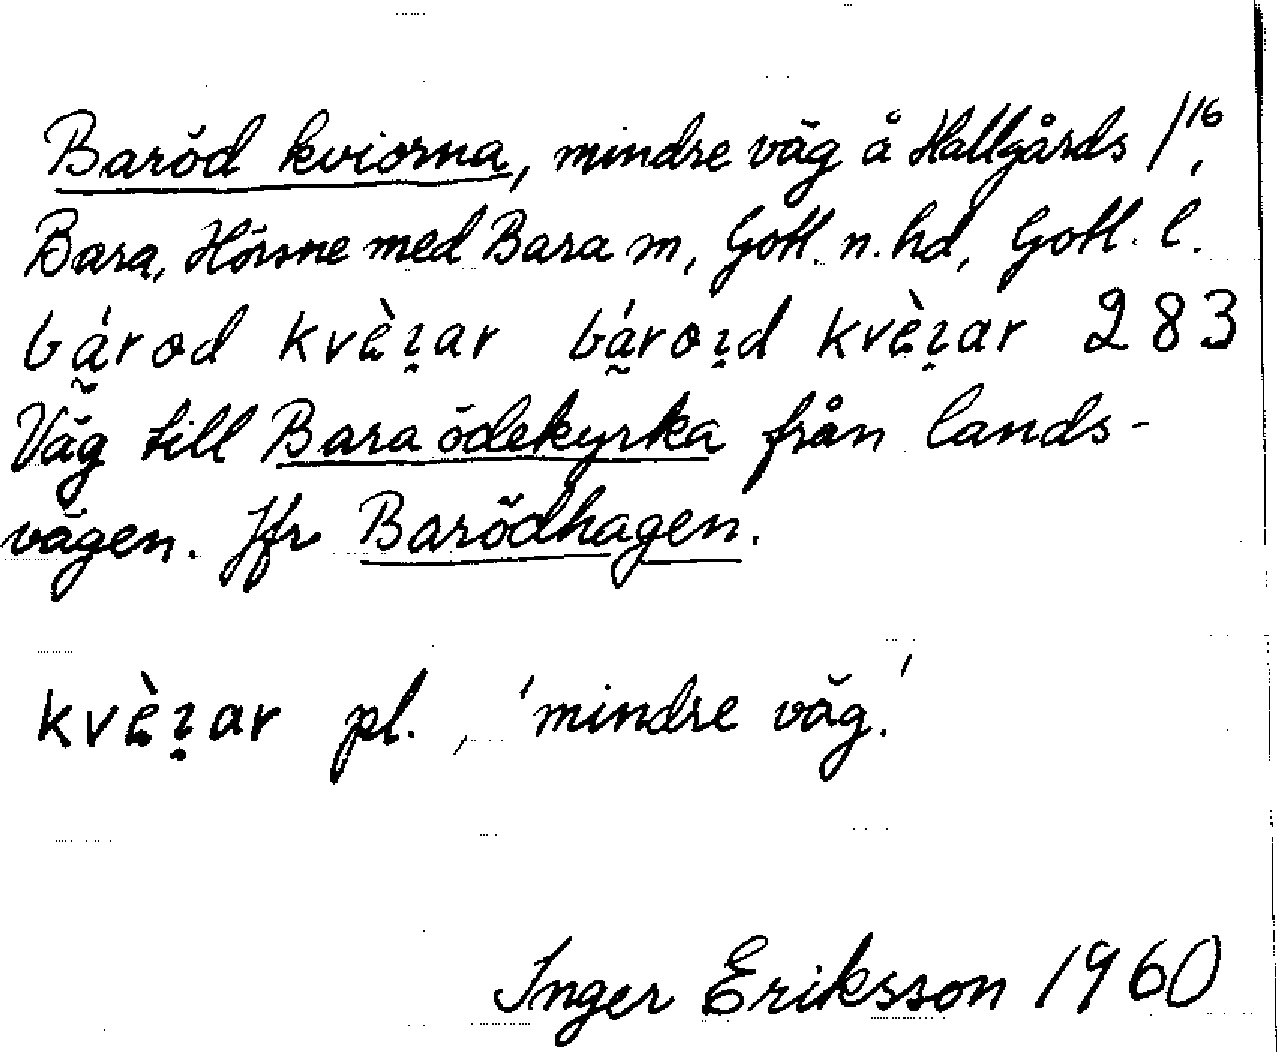 Baröd kviorna, mindre väg å Hallgårds 1¹⁶,
Bara, Hörsne med Bara sn, Gotl. n. hd, Gotl. l.
bárod kvèɪ̣ar bároɪ̣d kvèɪ̣ar 283
Väg till Bara ödekyrka från lands-
vägen. Jfr Barödhagen.
kvèɪ̣ar pl., 'mindre väg.'
Inger Eriksson 1960